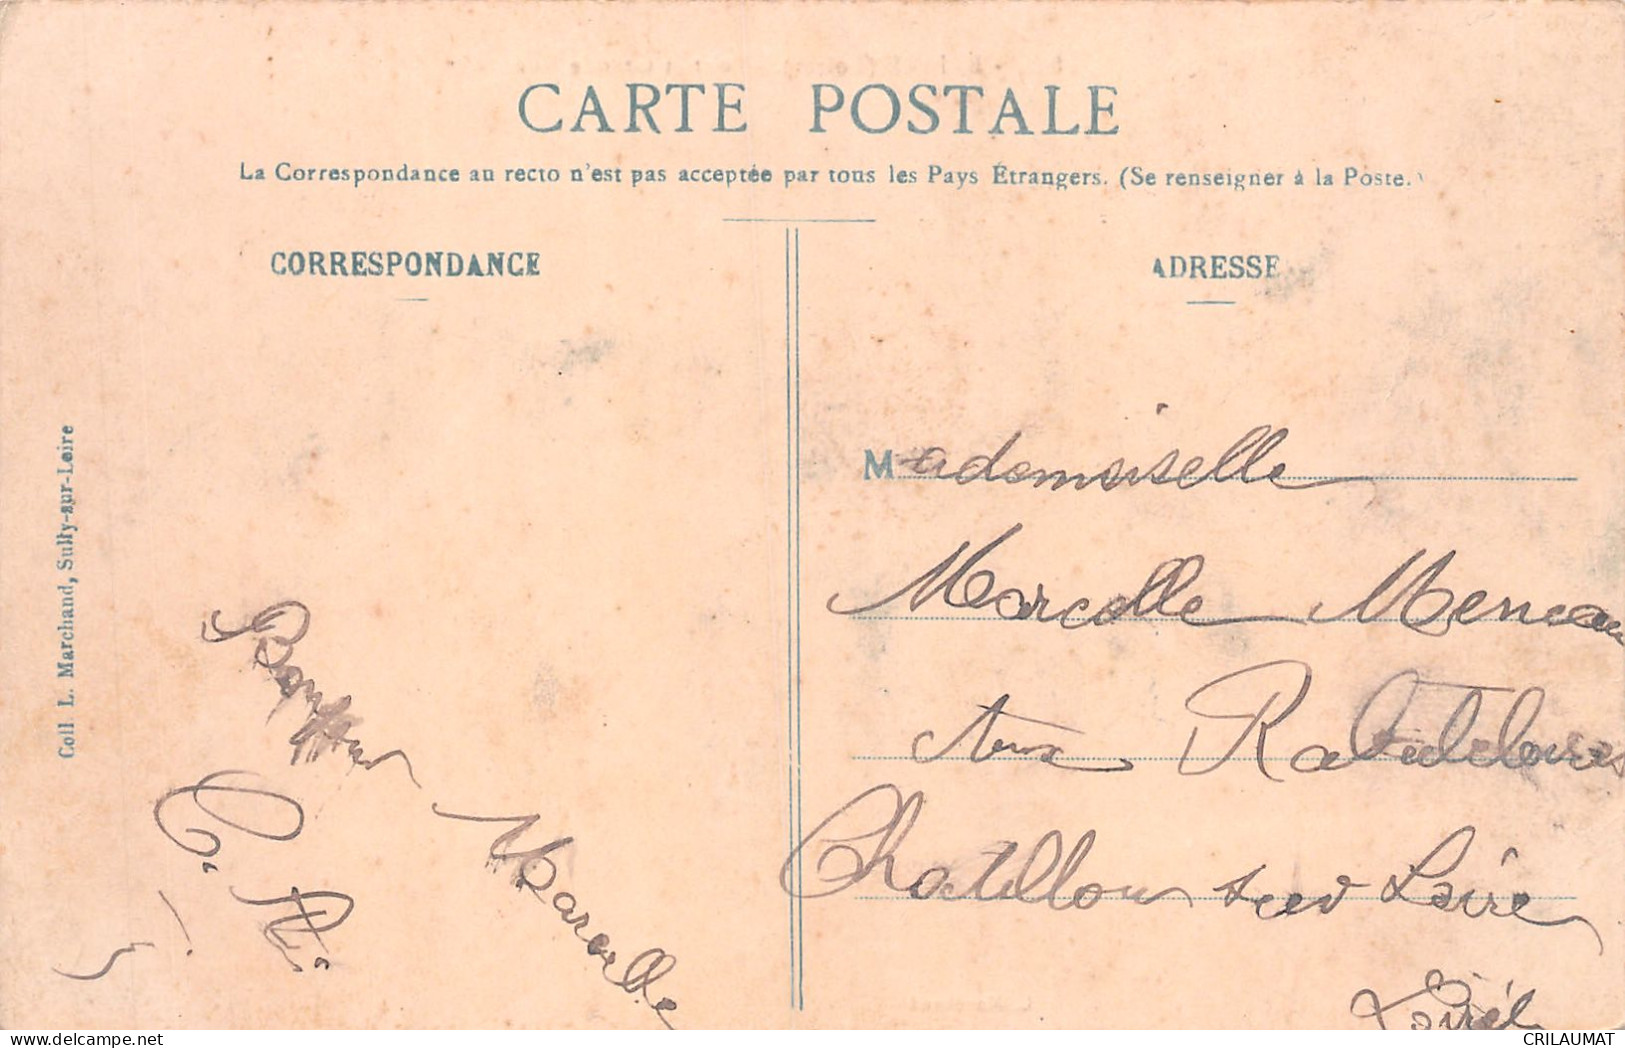 CARTE POSTALE
La Correspondance au recto n'est pas acceptée par tous les Pays Étrangers. (Se renseigner à la Poste.)
CORRESPONDANCE
ADRESSE
Coll L. Marchand, Sully-sur-Loire
Marcelle
Mademoiselle
Marcelle
Aux
Chatillon sur Loire
Loiret
CRILAUMAT